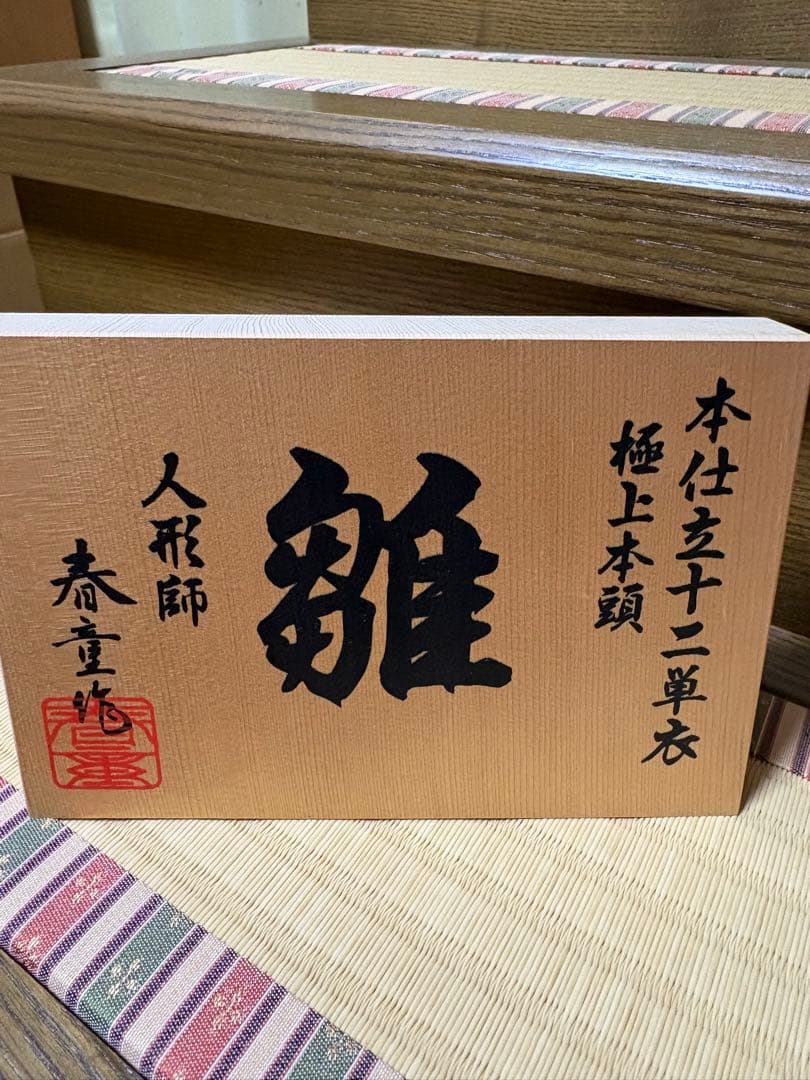 本仕立十二単衣
極上本頭
雛
人形師
春童作
春童